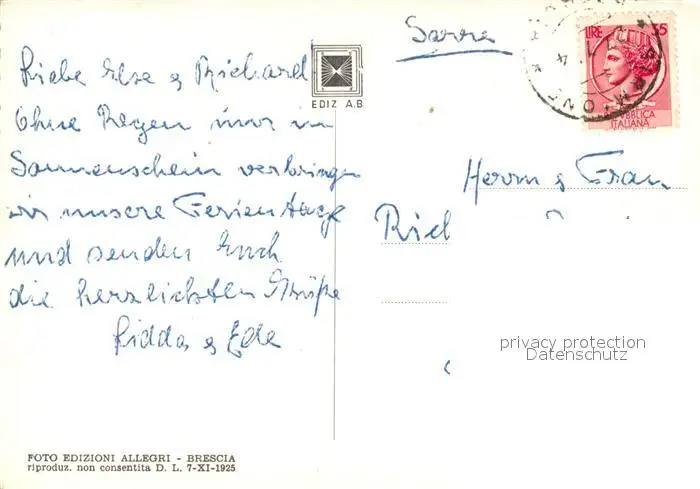 Liebe Else & Richard!
Ohne Regen nur in
Sonnenschein verbringen
wir unsere Ferientage
und senden Euch
die herzlichsten Grüße
& Ede
EDIZ A.B
Sarre
LIRE 35
REPUBBLICA
ITALIANA
Herrn & Frau
Rich
privacy protection
Datenschutz
FOTO EDIZIONI ALLEGRI - BRESCIA
riproduz. non consentita D. L. 7-XI-1925